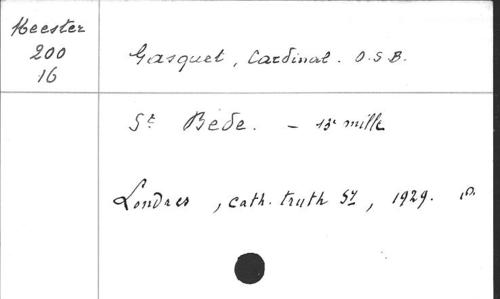 Heester
200
16
Gasquet, Cardinal. O.S.B.
St Bède. - 13e mille
Londres, Cath. truth Sy, 1929.